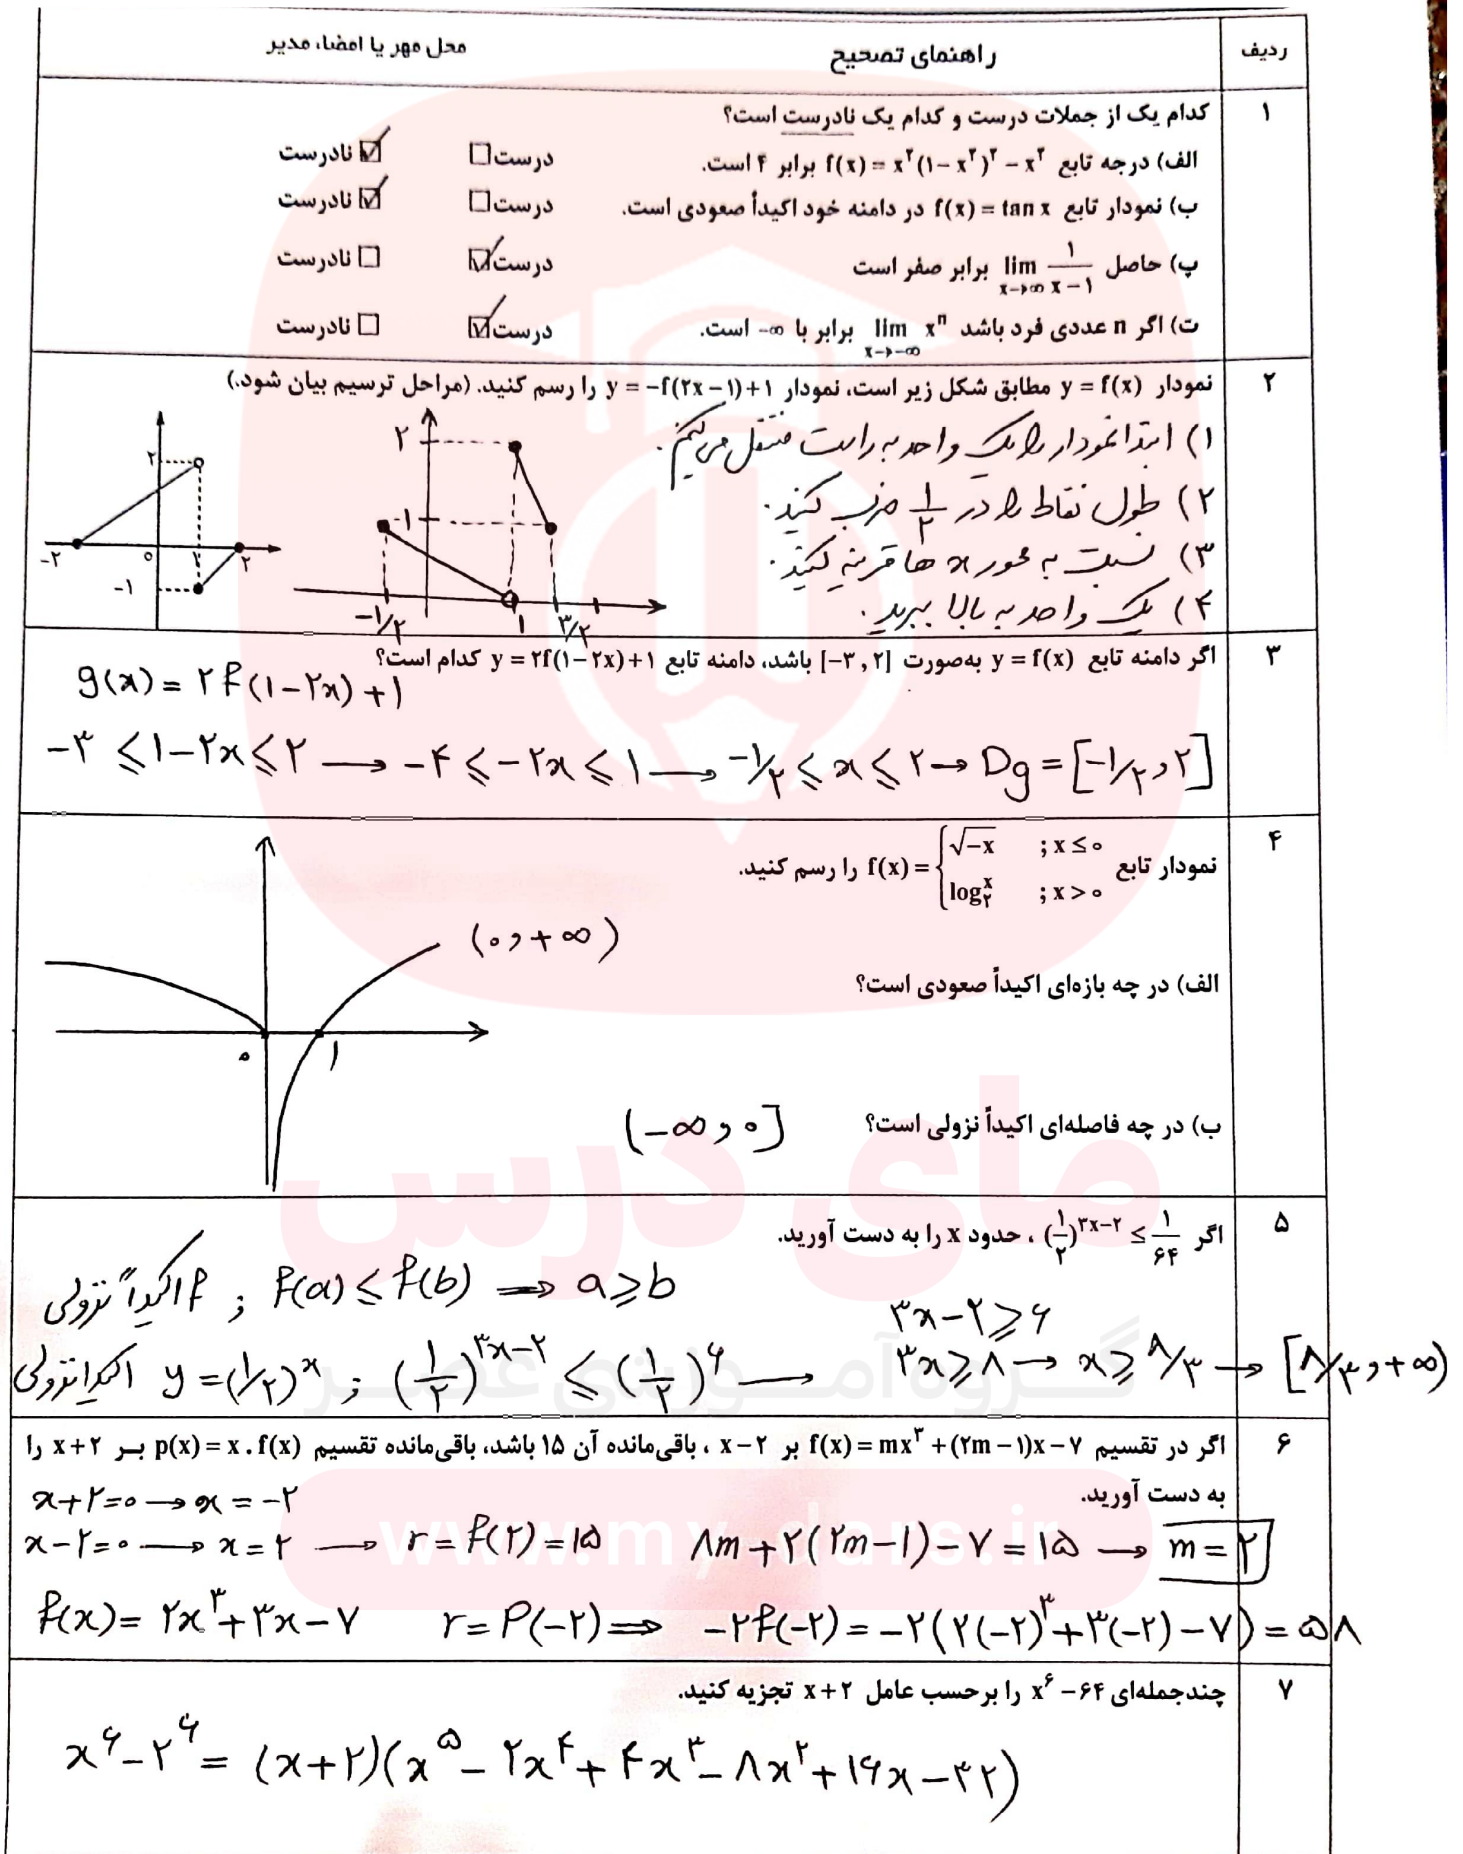 ردیف
راهنمای تصحیح
محل مهر یا امضاء مدیر
۱
کدام یک از جملات درست و کدام یک نادرست است؟
الف) درجه تابع f(x) = x²(1 - x²)² - x² برابر ۴ است. درست☐ ☑ نادرست
ب) نمودار تابع f(x) = tan x در دامنه خود اکیداً صعودی است. درست☐ ☑ نادرست
پ) حاصل lim x→∞ ۱/(x-۱) برابر صفر است درست☑ ☐ نادرست
ت) اگر n عددی فرد باشد lim x→-∞ xⁿ برابر با ∞- است. درست☑ ☐ نادرست
۲
نمودار y = f(x) مطابق شکل زیر است، نمودار y = -f(۲x-۱)+۱ را رسم کنید. (مراحل ترسیم بیان شود.)
۱) ابتدا نمودار را یک واحد به راست منتقل می‌کنیم.
۲) طول نقاط را در ۱/۲ ضرب کنید.
۳) نسبت به محور x ها قرینه کنید.
۴) یک واحد به بالا ببرید.
۲ -۲ ۰ ۱ ۲ -۱
۲ ۱ -۱/۲ ۱ ۳/۲
۳
اگر دامنه تابع y = f(x) به‌صورت [-۳, ۲] باشد، دامنه تابع y = ۲f(۱-۲x)+۱ کدام است؟
g(x) = ۲f(۱-۲x)+۱
-۳ ≤ ۱-۲x ≤ ۲ → -۴ ≤ -۲x ≤ ۱ → -۱/۲ ≤ x ≤ ۲ → Dg = [-۱/۲ , ۲]
۴
نمودار تابع f(x) = { √-x ; x ≤ ۰
log₂ˣ ; x > ۰ را رسم کنید.
(۰ , +∞)
الف) در چه بازه‌ای اکیداً صعودی است؟
۰ ۱
ب) در چه فاصله‌ای اکیداً نزولی است؟ (-∞ , ۰]
۵
اگر (۱/۲)^(۳x-۲) ≤ ۱/۶۴ ، حدود x را به دست آورید.
f اکیداً نزولی ; f(a) ≤ f(b) ⟹ a ≥ b
۳x-۲ ≥ ۶
اکیداً نزولی y = (۱/۲)^x ; (۱/۲)^(۳x-۲) ≤ (۱/۲)^۶ → ۳x ≥ ۸ → x ≥ ۸/۳ → [۸/۳ , +∞)
۶
اگر در تقسیم f(x) = mx³ + (۲m-۱)x - ۷ بر x-۲ ، باقی‌مانده آن ۱۵ باشد، باقی‌مانده تقسیم p(x) = x . f(x) بر x+۲ را
به دست آورید.
x+۲=۰ → x = -۲
x-۲=۰ → x=۲ → r = f(۲) = ۱۵ ۸m+۲(۲m-۱)-۷ = ۱۵ → m=۲
f(x) = ۲x³+۳x-۷ r = P(-۲) ⟹ -۲f(-۲) = -۲(۲(-۲)³+۳(-۲)-۷) = ۵۸
۷
چندجمله‌ای x⁶ - ۶۴ را برحسب عامل x+۲ تجزیه کنید.
x⁶-۲⁶ = (x+۲)(x⁵-۲x⁴+۴x³-۸x²+۱۶x-۳۲)
مای درس
گروه آموزشی عصر
www.my-dars.ir